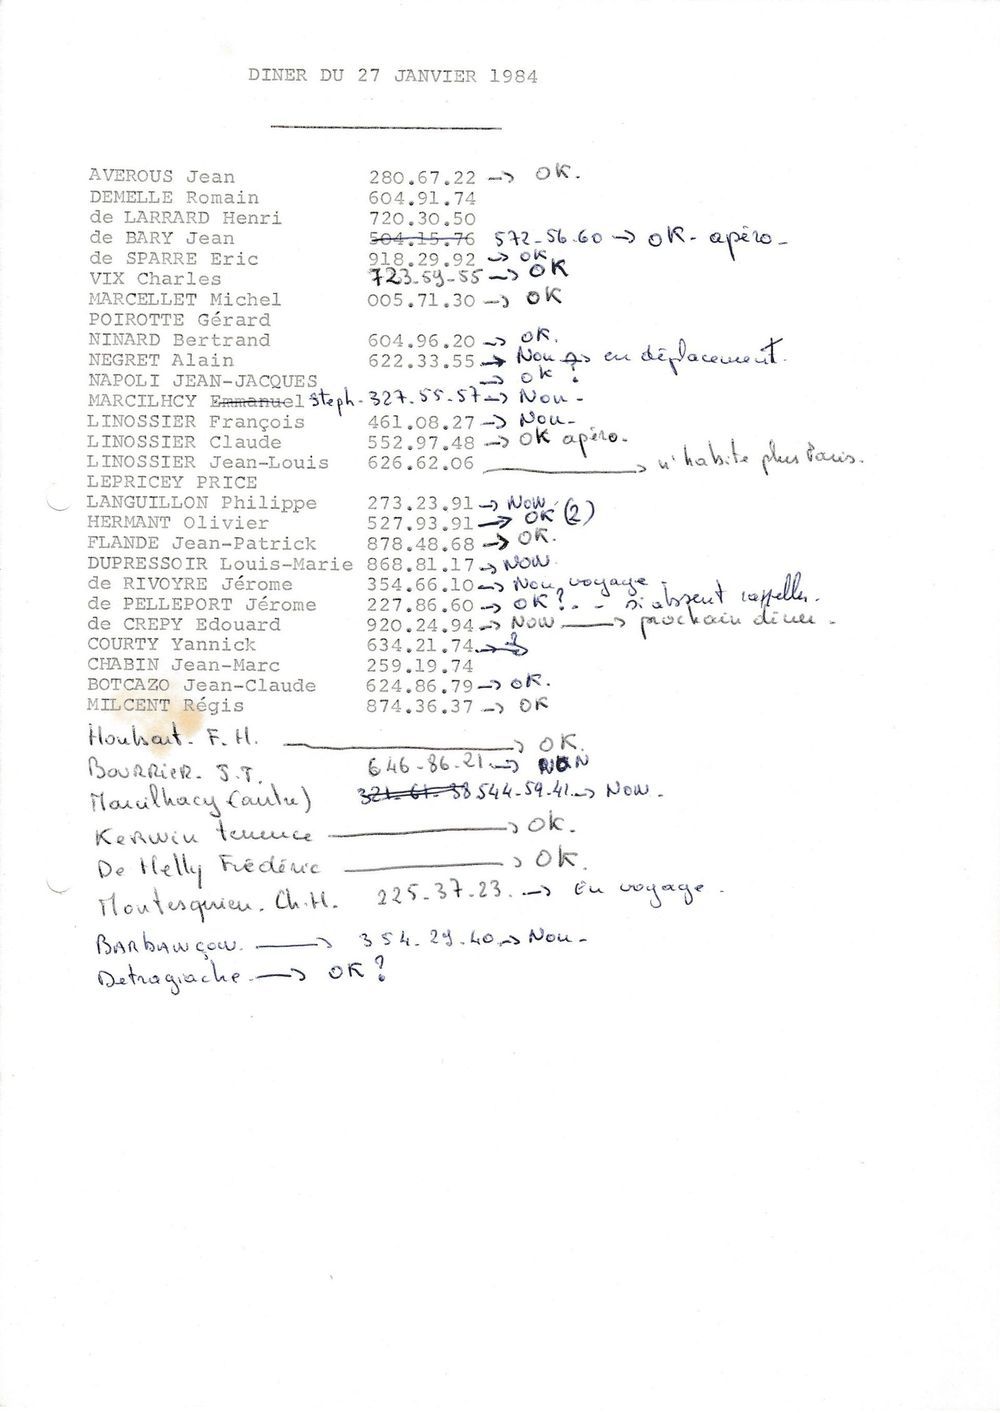 DINER DU 27 JANVIER 1984
AVEROUS Jean 280.67.22 → OK.
DEMELLE Romain 604.91.74
de LARRARD Henri 720.30.50
de BARY Jean 504.15.76 572-56.60 → OK - apéro -
de SPARRE Eric 918.29.92 → OK
VIX Charles 723-59-55 → OK
MARCELLET Michel 005.71.30 → OK
POIROTTE Gérard
NINARD Bertrand 604.96.20 → OK.
NEGRET Alain 622.33.55 → Non → en déplacement.
NAPOLI JEAN-JACQUES → OK ?
MARCILHCY Emmanuel Steph - 327.55-57 → Non -
LINOSSIER François 461.08.27 → Non -
LINOSSIER Claude 552.97.48 → OK apéro.
LINOSSIER Jean-Louis 626.62.06 → n'habite plus Paris.
LEPRICEY PRICE
LANGUILLON Philippe 273.23.91 → NON
HERMANT Olivier 527.93.91 → OK (2)
FLANDE Jean-Patrick 878.48.68 → OK.
DUPRESSOIR Louis-Marie 868.81.17 → NON
de RIVOYRE Jérome 354.66.10 → Non voyage -
de PELLEPORT Jérome 227.86.60 → OK ? - - si absent rappeller.
de CREPY Edouard 920.24.94 → NON → prochain diner -
COURTY Yannick 634.21.74 → ?
CHABIN Jean-Marc 259.19.74
BOTCAZO Jean-Claude 624.86.79 → OK.
MILCENT Régis 874.36.37 → OK
F. H. → OK.
BOURRIER. J.T. 646-86-21 → NON
Marcilhacy (autre) 544-59.41 → Non.
Kerwin terence → OK.
De Melly Frédéric → OK.
Montesquieu. Ch. H. 225-37-23. → En voyage.
BARBANÇON. → 354.29.40 → Non -
Detragiache → OK ?